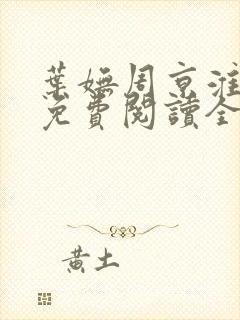 葉嫵周京淮
免費閱讀全
黃土